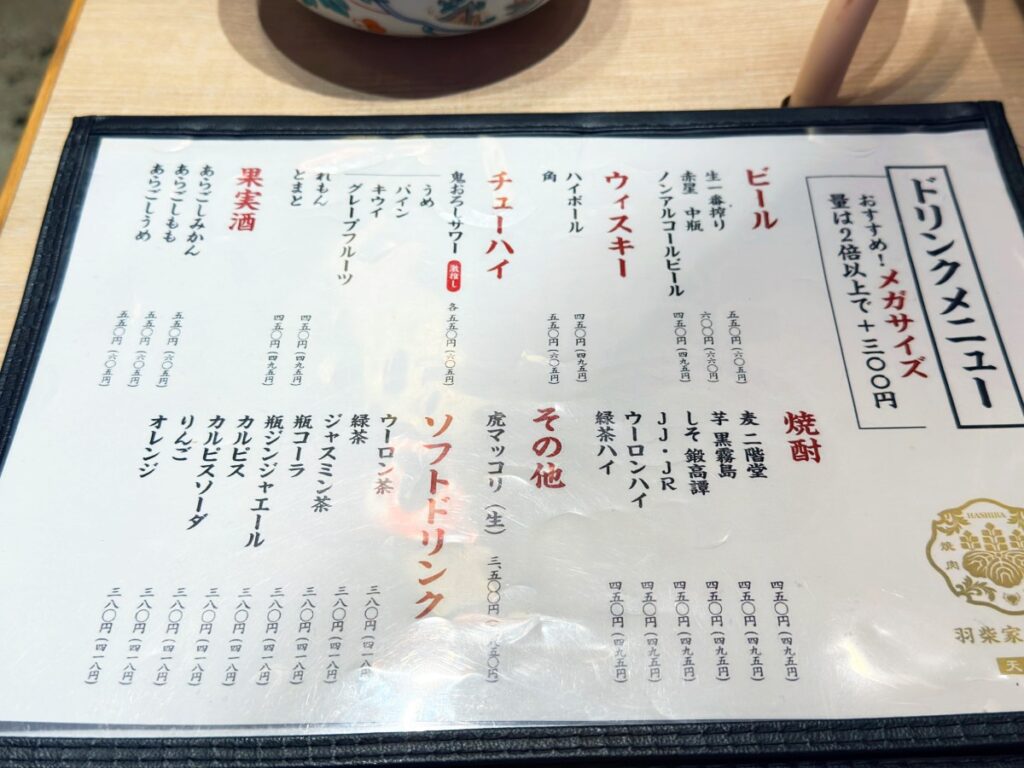 ドリンクメニュー
おすすめ！メガサイズ
量は２倍以上で＋三〇〇円
ビール
生一番搾り 五五〇円（六〇五円）
赤星 中瓶 六〇〇円（六六〇円）
ノンアルコールビール 四五〇円（四九五円）
ウィスキー
ハイボール 四五〇円（四九五円）
角 五五〇円（六〇五円）
チューハイ
鬼おろしサワー 激推し 各 五五〇円（六〇五円）
うめ
パイン
キウイ
グレープフルーツ
れもん 四五〇円（四九五円）
とまと 四五〇円（四九五円）
果実酒
あらごしみかん 五五〇円（六〇五円）
あらごしもも 五五〇円（六〇五円）
あらごしうめ 五五〇円（六〇五円）
焼酎
麦 二階堂 四五〇円（四九五円）
芋 黒霧島 四五〇円（四九五円）
しそ 鍛高譚 四五〇円（四九五円）
ＪＪ・ＪＲ 四五〇円（四九五円）
ウーロンハイ 四五〇円（四九五円）
緑茶ハイ 四五〇円（四九五円）
その他
虎マッコリ（生） 三、五〇〇円（八五〇円）
ソフトドリンク
ウーロン茶 三八〇円（四一八
緑茶 三八〇円（四一八円）
ジャスミン茶 三八〇円（四一八円）
瓶コーラ 三八〇円（四一八円）
瓶ジンジャエール 三八〇円（四一八円）
カルピス 三八〇円（四一八円）
カルピスソーダ 三八〇円（四一八円）
りんご 三八〇円（四一八円）
オレンジ 三八〇円（四一八円）
HASHIBA
焼肉
羽柴家
天